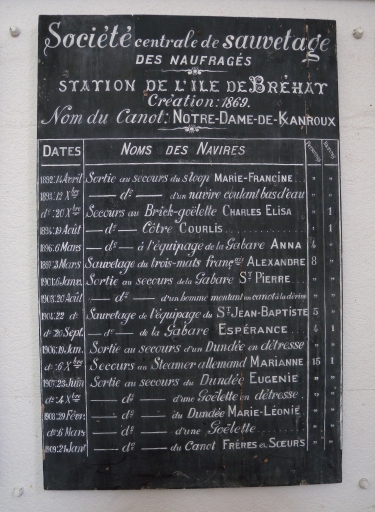 Société centrale de sauvetage
DES NAUFRAGÉS
STATION DE L'ILE DE BRÉHAT
Création: 1869.
Nom du Canot: NOTRE-DAME-DE-KANROUX
DATES NOMS DES NAVIRES
1892: 14 Avril Sortie au secours du sloop MARIE-FRANCINE " "
1893: 12 Xbre — do — d'un navire coulant bas d'eau " "
do: 20 Xbre Secours au Brick-goëlette CHARLES ELISA " 1
1894: 19 Août — do — Côtre COURLIS " 1
1896: 6 Mars — do — à l'équipage de la Gabare ANNA 4 "
1897: 3 Mars Sauvetage du trois-mats franç ALEXANDRE 8 "
1901: 6 Janv. Sortie au secours de la Gabare St PIERRE " "
1903: 20 Août — do — d'un homme montant un canot à la dérive " "
1904: 22 do Sauvetage de l'équipage du St JEAN-BAPTISTE 5 "
do 20 Sept. — do — de la Gabare ESPÉRANCE 4 1
1906: 19 Jan. Sortie au secours d'un Dundée en détresse " "
do: 6 Xbre Secours au Steamer allemand MARIANNE 15 1
1907: 23 Juin Sortie au secours du Dundée EUGENIE " "
do: 4 Xbre — do — d'une Goëlette en détresse " "
1908: 29 Févr: — do — du Dundée MARIE-LÉONIE " "
do: 6 Mars — do — d'une Goëlette " "
1909: 21 Janv — do — du Canot FRÈRES et SŒURS " "